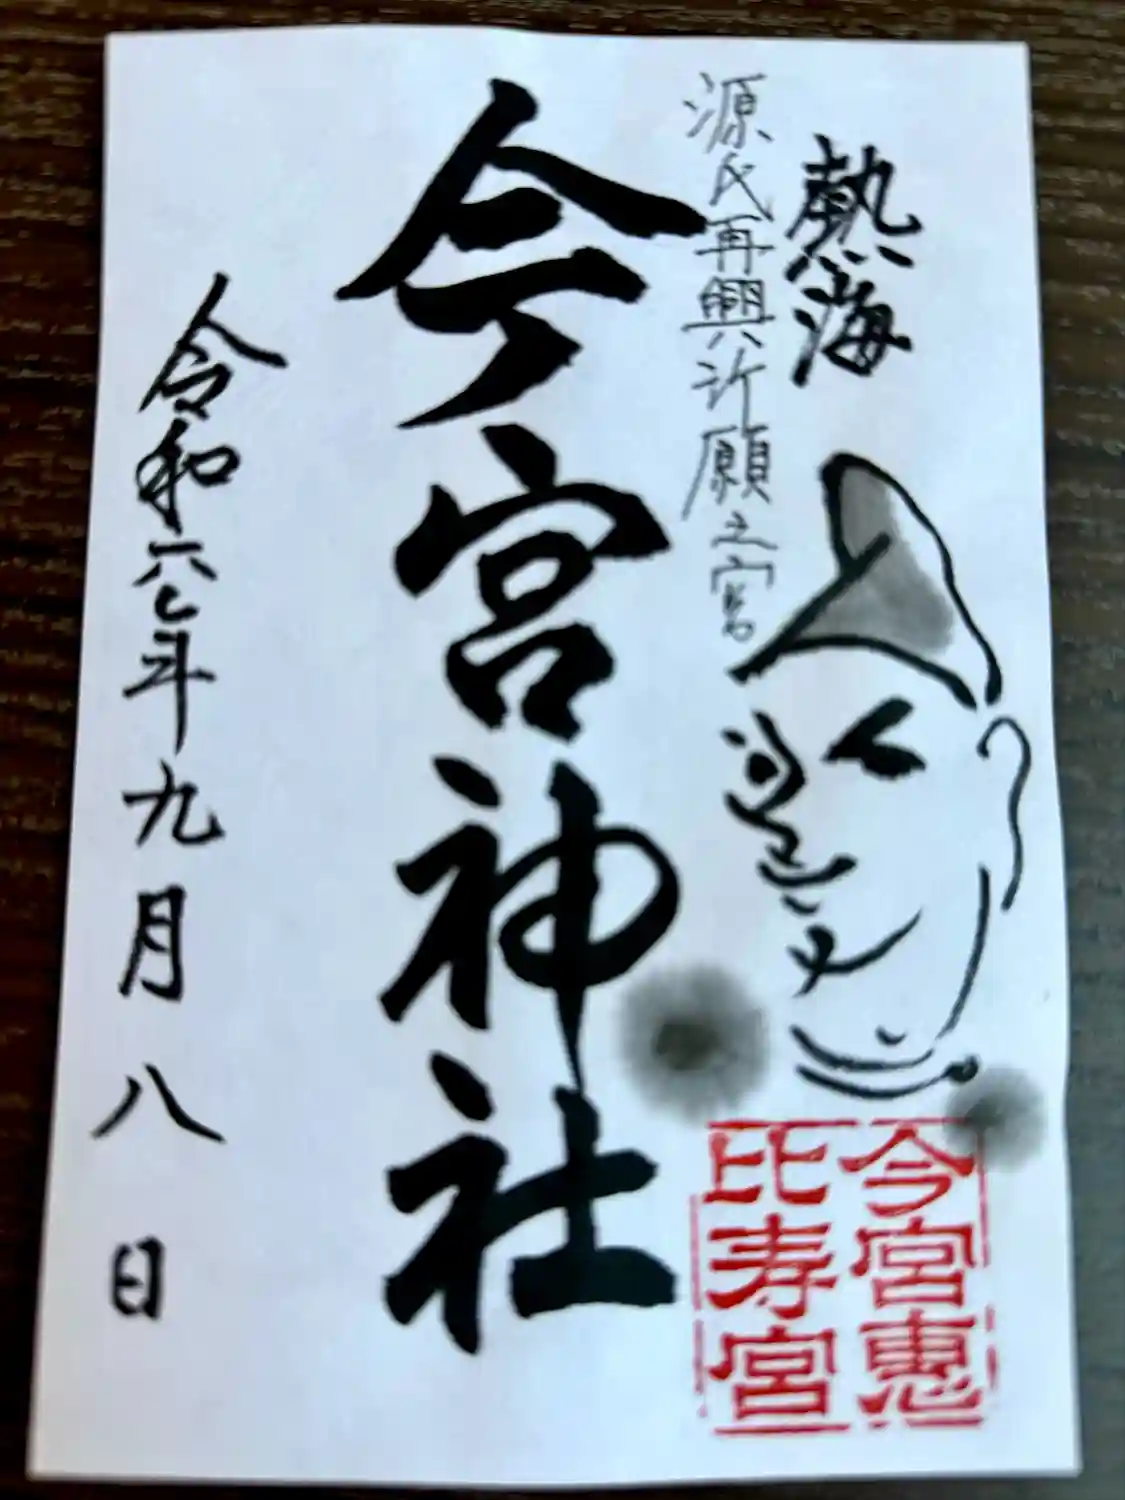 熱海
源氏再興許願之宮
今宮神社
令和六年九月八日
今宮恵
比寿宮